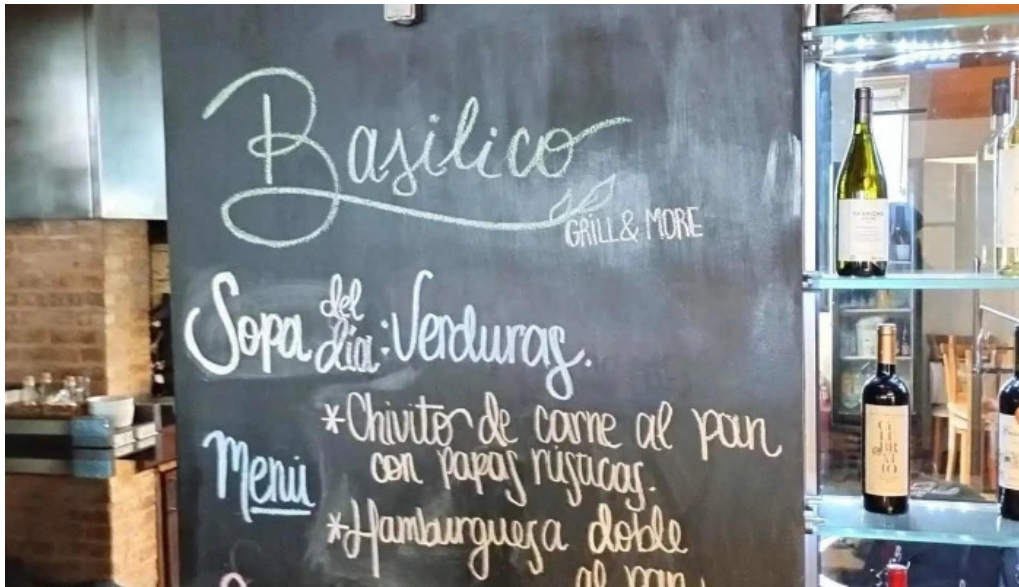 Basilico
GRILL & MORE
Sopa del día: Verduras.
Menú
*Chivito de carne al pan
con papas rústicas.
*Hamburguesa doble
al pan